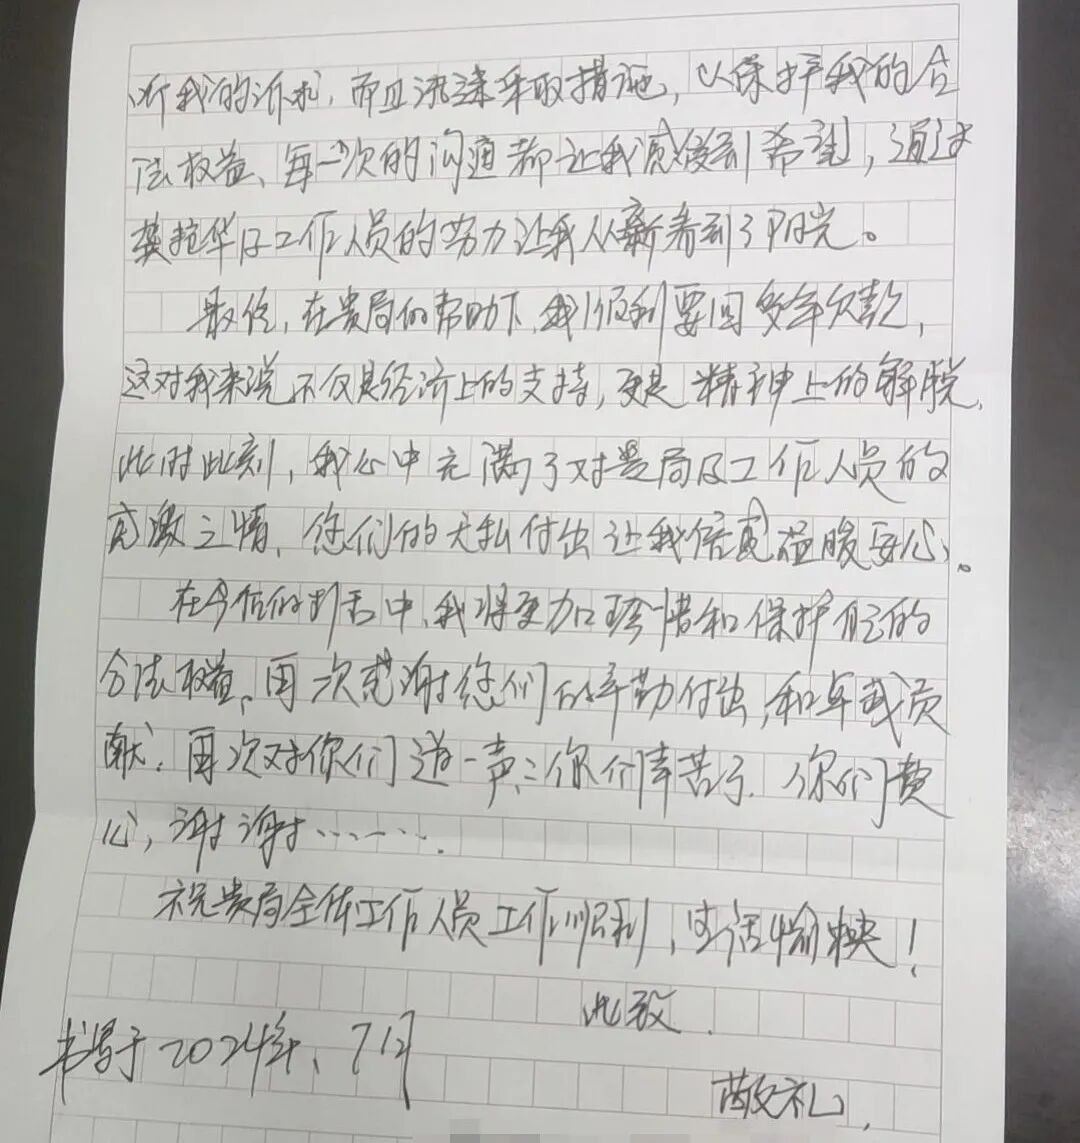 听我的诉求，而且迅速采取措施，以保护我的合
法权益、每一次的沟通都让我感受到希望，通过
龚艳华及工作人员的努力让我从新看到了阳光。
最终，在贵局的帮助下，我顺利要回多年欠款，
这对我来说不仅是经济上的支持，更是精神上的解脱，
此时此刻，我心中充满了对贵局及工作人员的
感激之情、您们的无私付出让我倍感温暖安心、。
在今后的生活中、我将更加珍惜和保护自己的
合法权益、再次感谢您们的辛勤付出，和卓越贡
献．再次对你们道一声：你们辛苦了．你们费
心，谢谢…….
祝贵局全体工作人员工作顺利，生活愉快！
此致．
书写于2024年、7月
敬礼．